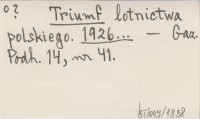 o? Triumf lotnictwa
polskiego. 1926... — Gaz.
Podh. 14, nr 41.